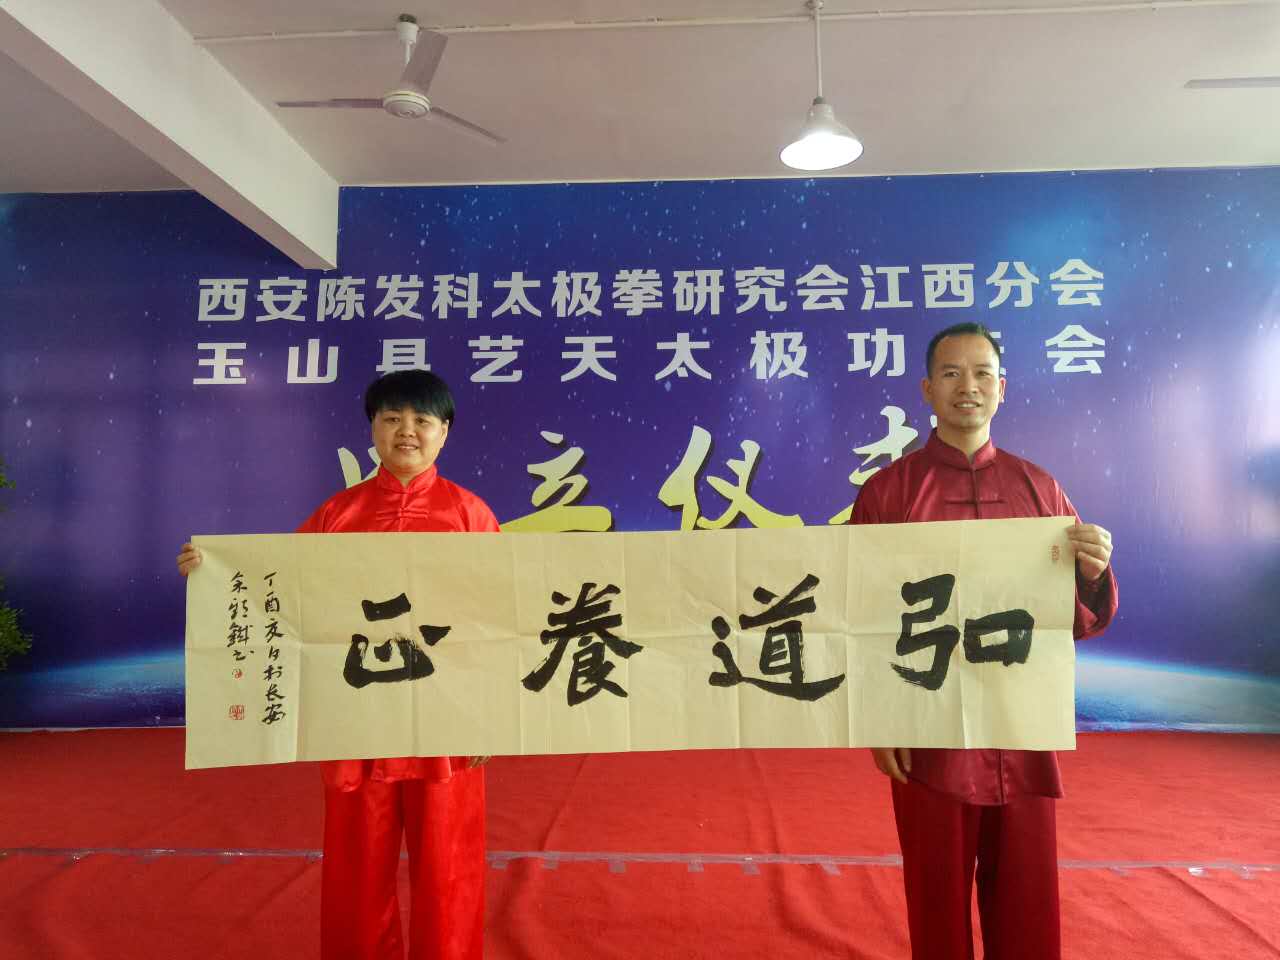 西安陈发科太极拳研究会江西分会
玉山县艺天太极功会
立仪
弘道養正
丁酉亥月於长安